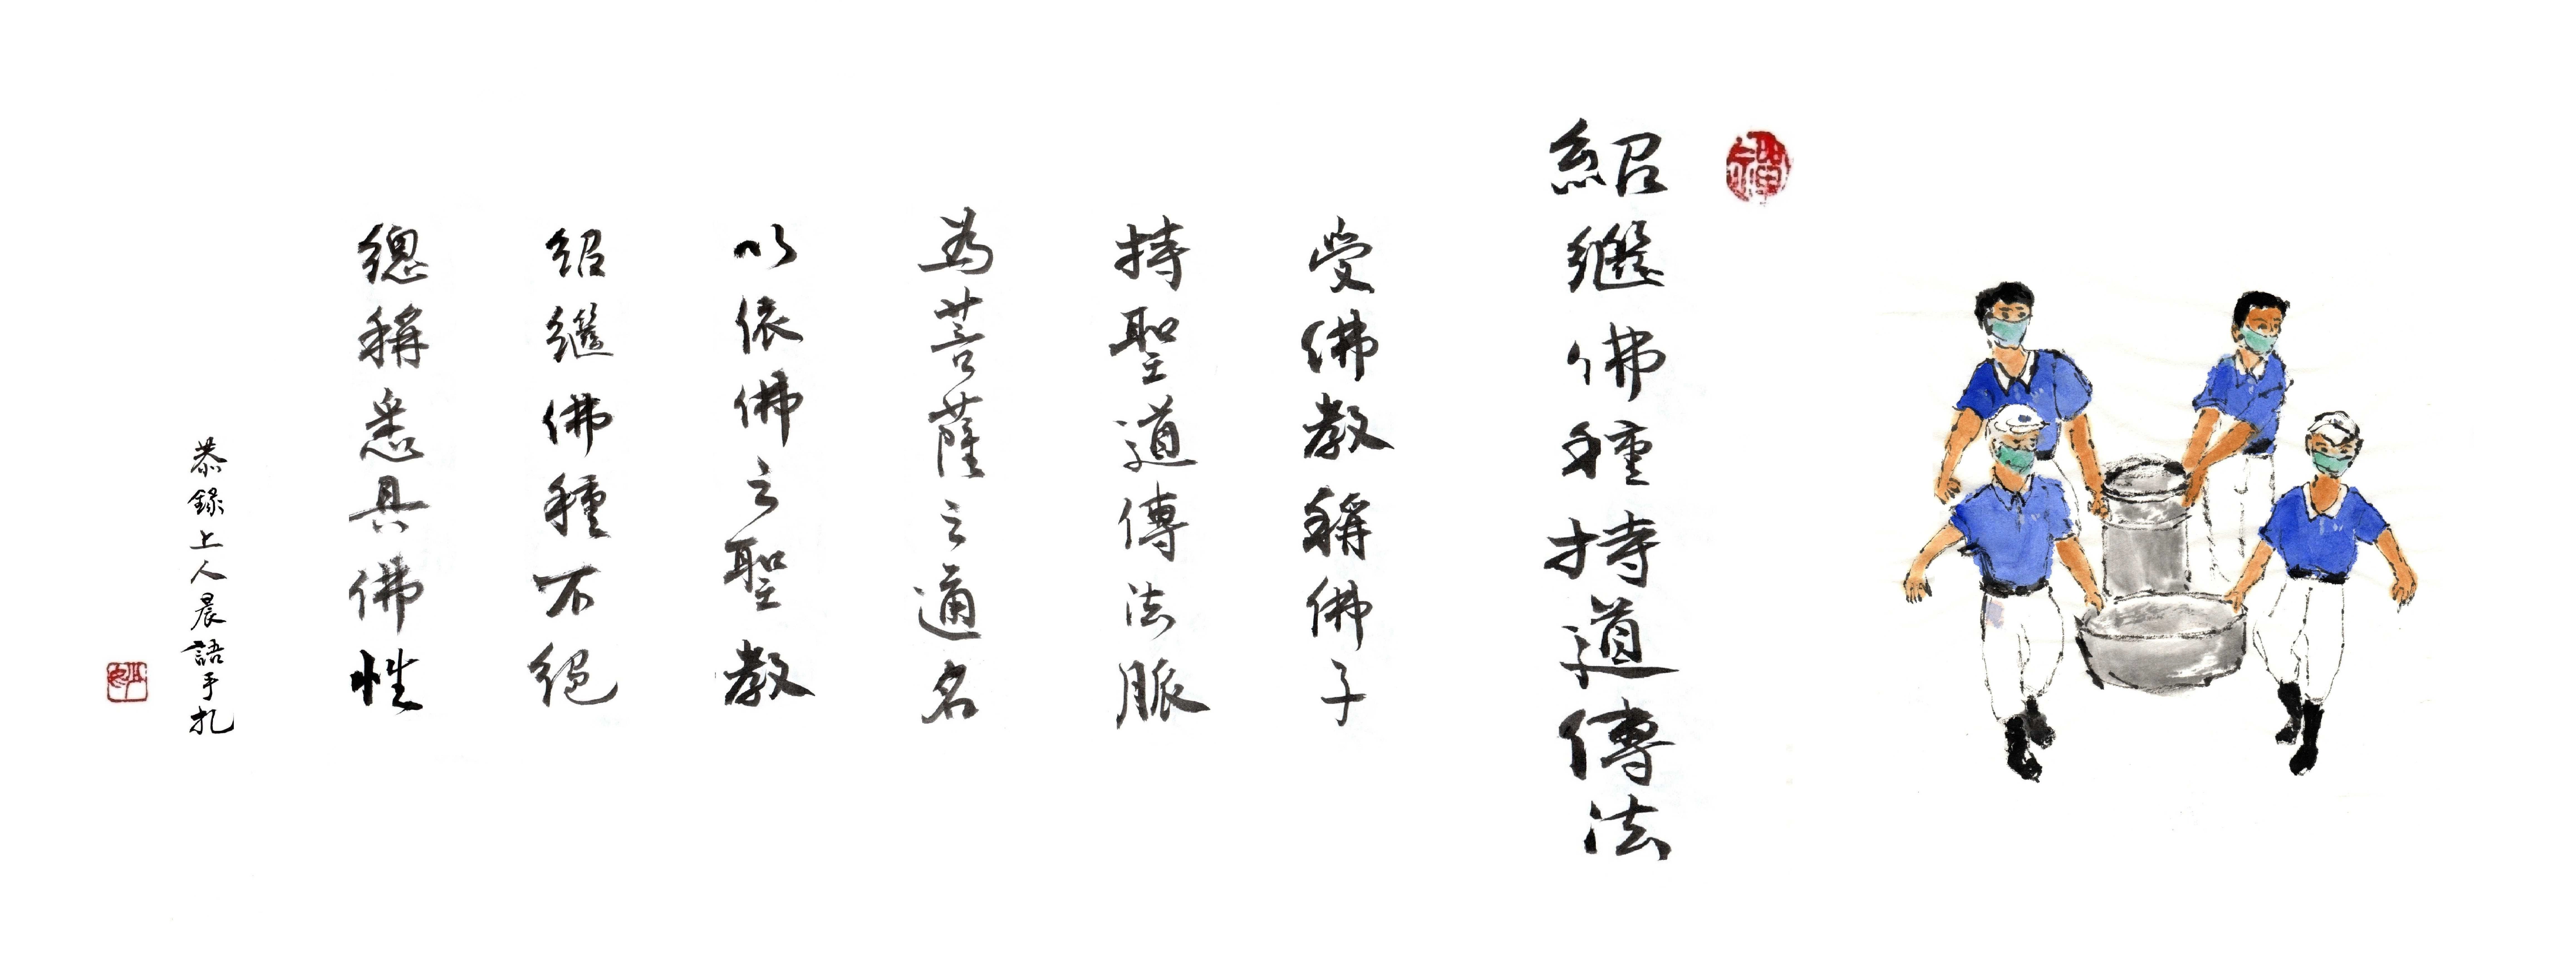 紹繼佛種持道傳法
受佛教稱佛子
持聖道傳法脈
為菩薩之通名
以依佛之聖教
紹繼佛種不絕
總稱悉具佛性
恭錄上人晨語手札